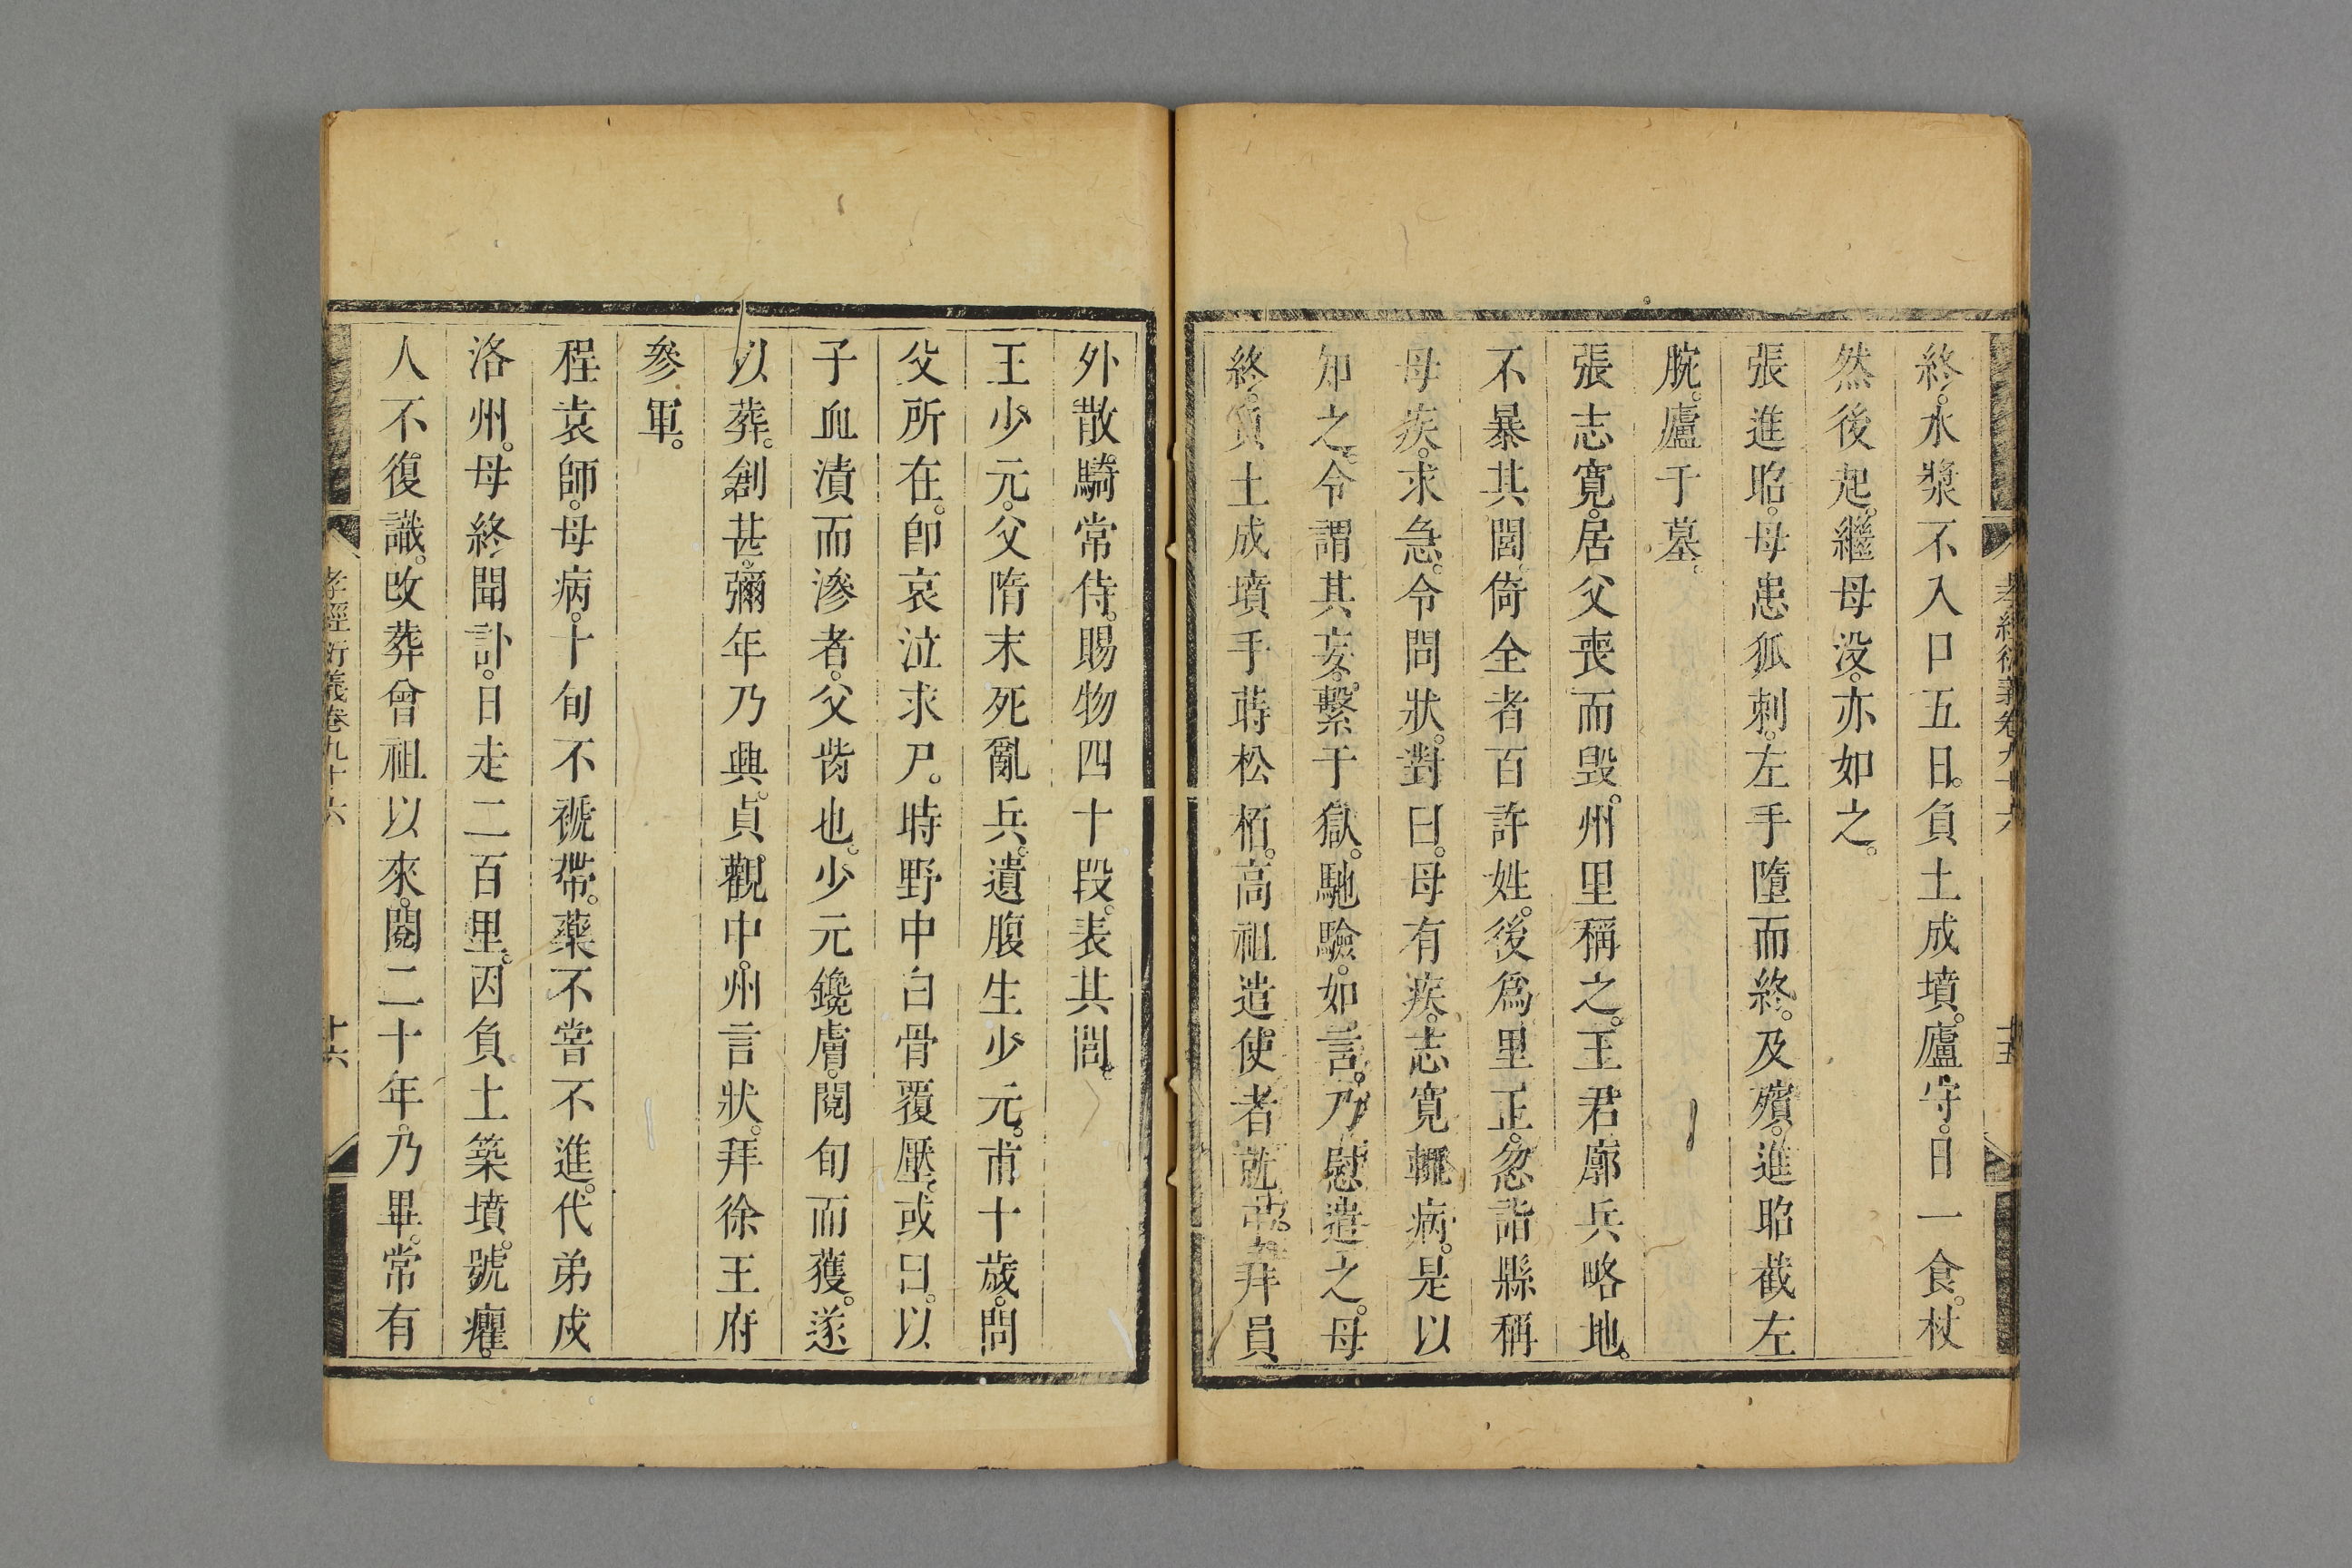 孝經衍義卷九十六
十五
終。水漿不入口五日。負土成墳。廬守。日一食。杖
然後起。繼母没。亦如之。
張進昭。母患狐刺。左手墮而終。及殯。進昭截左
腕。廬于墓。
張志寬。居父喪而毀。州里稱之。王君廓兵略地。
不暴其閭。倚全者百許姓。後爲里正。忽詣縣稱
母疾。求急。令問狀。對曰。母有疾。志寬輒病。是以
知之。令謂其妄。繫于獄。馳驗。如言。乃慰遣之。母
終。負土成墳。手蒔松栢。高祖遣使者就弔。拜員
外散騎常侍。賜物四十段。表其閭。
王少元。父隋末死亂兵。遺腹生少元。甫十歲。問
父所在。卽哀泣求尸。時野中白骨覆壓。或曰。以
子血漬而滲者。父胔也。少元鑱膚。閱旬而獲。遂
以葬。創甚。彌年乃興。貞觀中。州言狀。拜徐王府
參軍。
程袁師。母病。十旬不褫帶。藥不嘗不進。代弟戍
洛州。母終聞訃。日走二百里。因負土築墳。號癯。
人不復識。改葬曾祖以來。閱二十年。乃畢。常有
孝經衍義卷九十六
十六